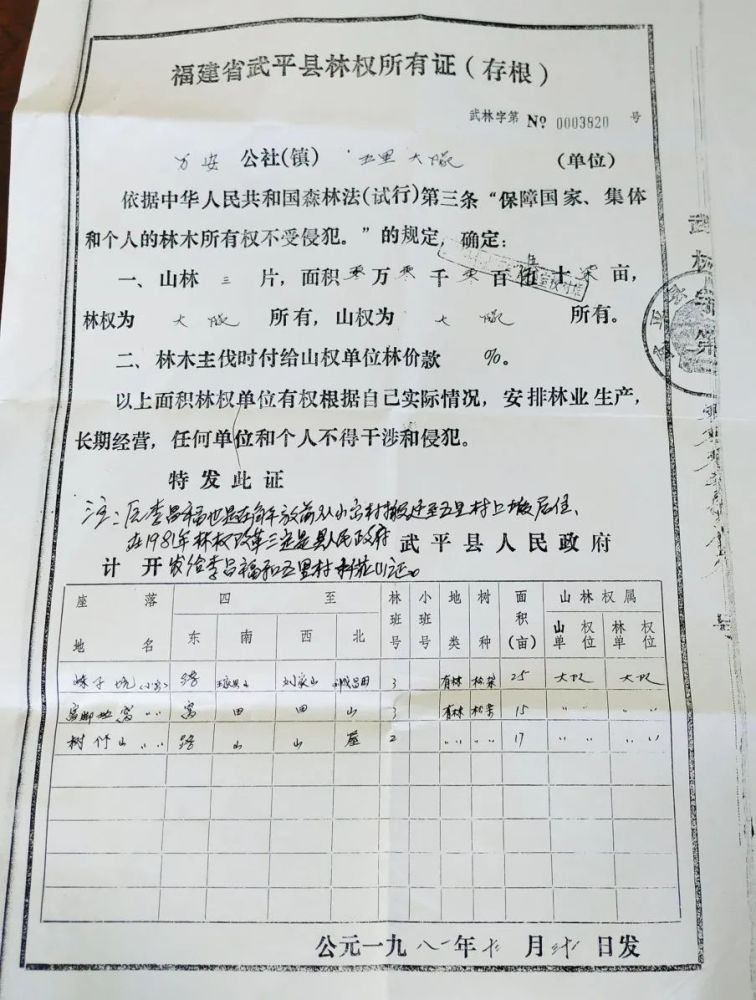 福建省武平县林权所有证(存根)
武林字第 № 0003820 号
万安 公社(镇) 五里大队 (单位)
依据中华人民共和国森林法(试行)第三条“保障国家、集体
和个人的林木所有权不受侵犯。”的规定,确定:
一、山林 三 片,面积 零 万 零 千 零 百 伍 十 柒 亩,
林权为 大队 所有,山权为 大队 所有。
二、林木主伐时付给山权单位林价款 %。
以上面积林权单位有权根据自己实际情况,安排林业生产,
长期经营,任何单位和个人不得干涉和侵犯。
特发此证
注:李昌福也是在解放前从小 村搬迁至五里村上 居住,
在1981年林权改革三定是县人民政府
武平县人民政府
计开 发给李昌福和五里村 证。
座落地名 四至 林班号 小班号 地类 树种 面积(亩) 山林权属
东 南 西 北 山权单位 林权单位
坑 路 刘家山 3 有林 松杂 25 大队 大队
窝 窝 田 田 山 3 有林 松杂 15 〃 〃
树竹山 〃〃 路 山 山 墓 2 〃〃 〃〃 17 〃 〃
公元一九八一年十 月 日发
武
林
字
第
号